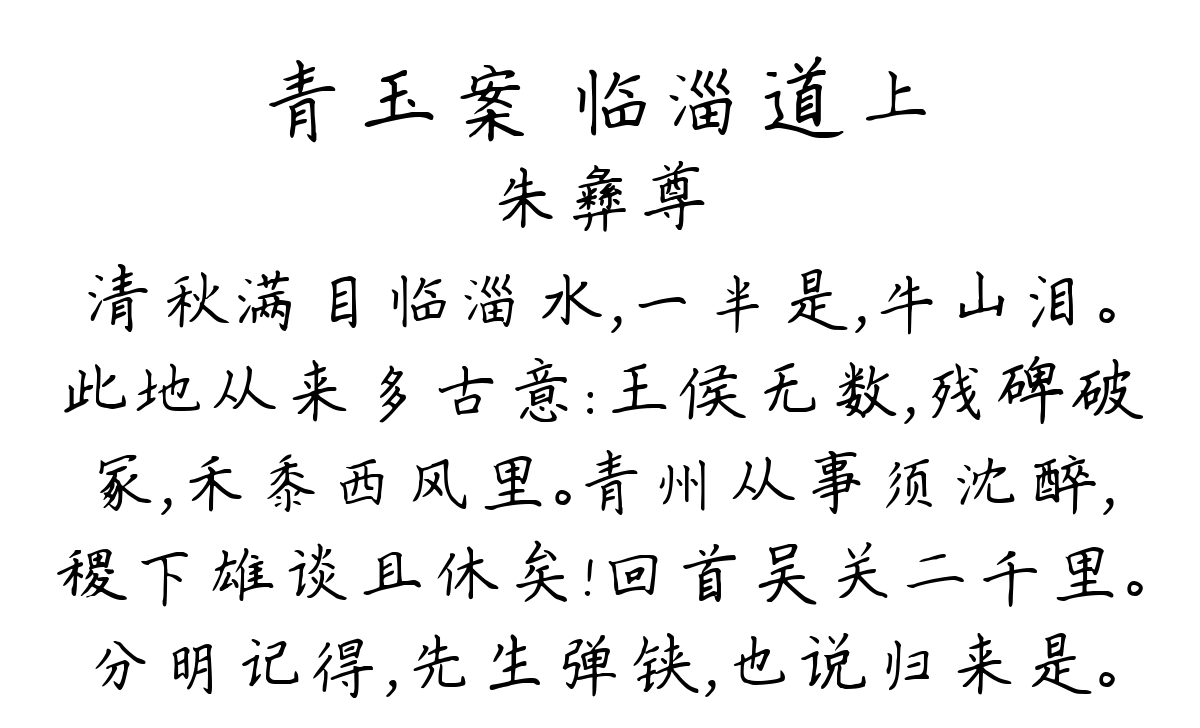 青玉案 临淄道上
朱彝尊
清秋满目临淄水,一半是,牛山泪。
此地从来多古意:王侯无数,残碑破
冢,禾黍西风里。青州从事须沈醉,
稷下雄谈且休矣!回首吴关二千里。
分明记得,先生弹铗,也说归来是。